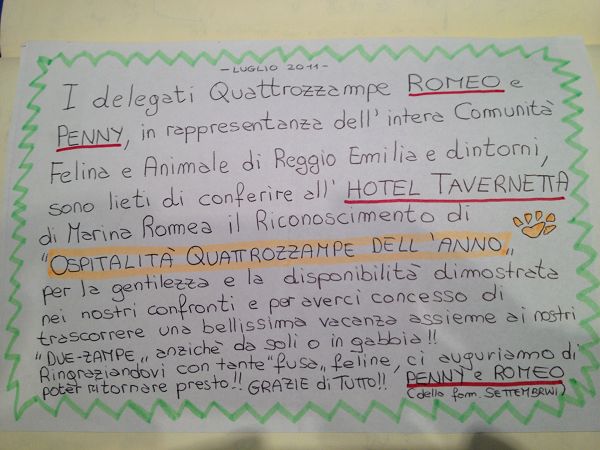 - LUGLIO 2011 -
I delegati Quattrozzampe ROMEO e
PENNY, in rappresentanza dell'intera Comunità
Felina e Animale di Reggio Emilia e dintorni,
sono lieti di conferire all' HOTEL TAVERNETTA
di Marina Romea il Riconoscimento di
"OSPITALITÀ QUATTROZZAMPE DELL'ANNO"
per la gentilezza e la disponibilità dimostrata
nei nostri confronti e per averci concesso di
trascorrere una bellissima vacanza assieme ai nostri
"DUE-ZAMPE" anzichè da soli o in gabbia!!
Ringraziandovi con tante "fusa" feline, ci auguriamo di
poter ritornare presto!! GRAZIE di TUTTO!! PENNY e ROMEO
(della fam. SETTEMBRINI)